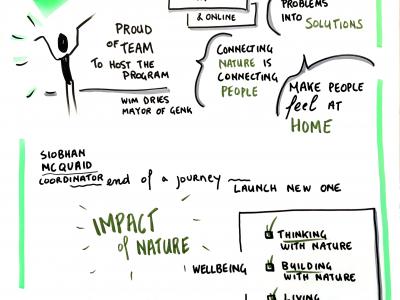 & ONLINE
PROBLEMS
INTO SOLUTIONS
PROUD
OF TEAM
TO HOST THE
PROGRAM
WIM DRIES
MAYOR OF GENK
CONNECTING
NATURE IS
CONNECTING
PEOPLE
MAKE PEOPLE
feel AT
HOME
SIOBHAN
MCQUAID
COORDINATOR
end of a journey
LAUNCH NEW ONE
IMPACT
of NATURE
WELLBEING
THINKING
WITH NATURE
BUILDING
WITH NATURE
LIVING